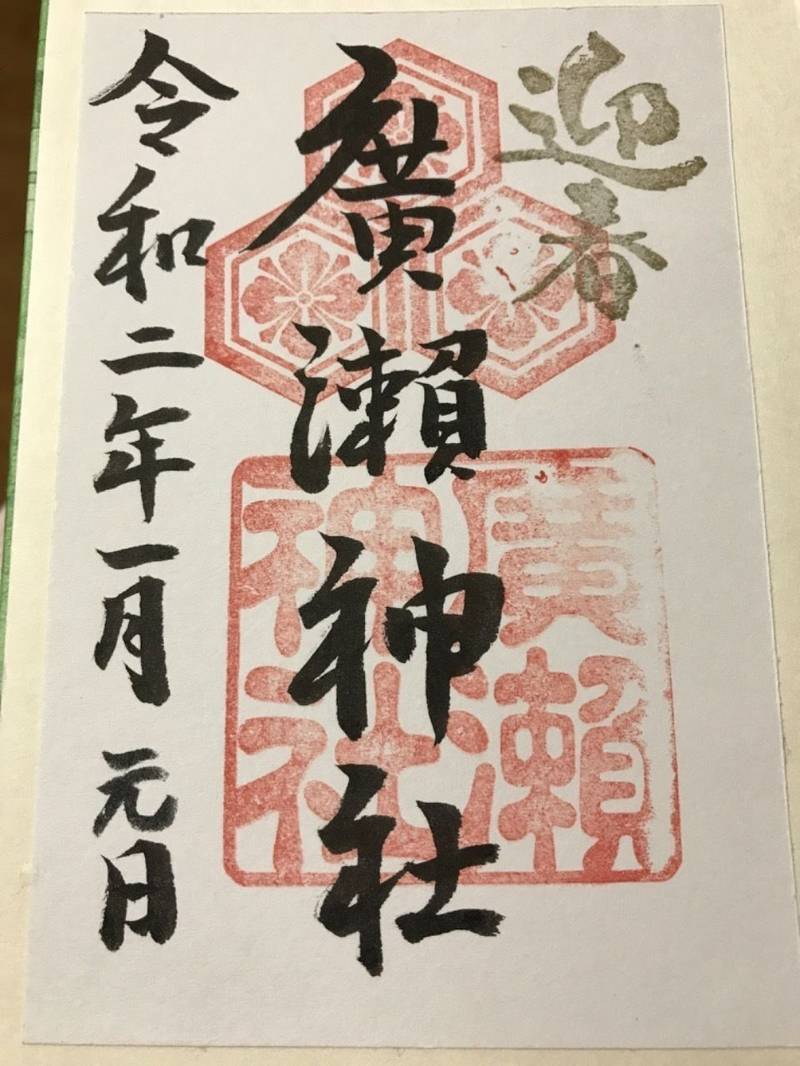 迎春
廣瀬神社
廣瀬神社
令和二年一月元日